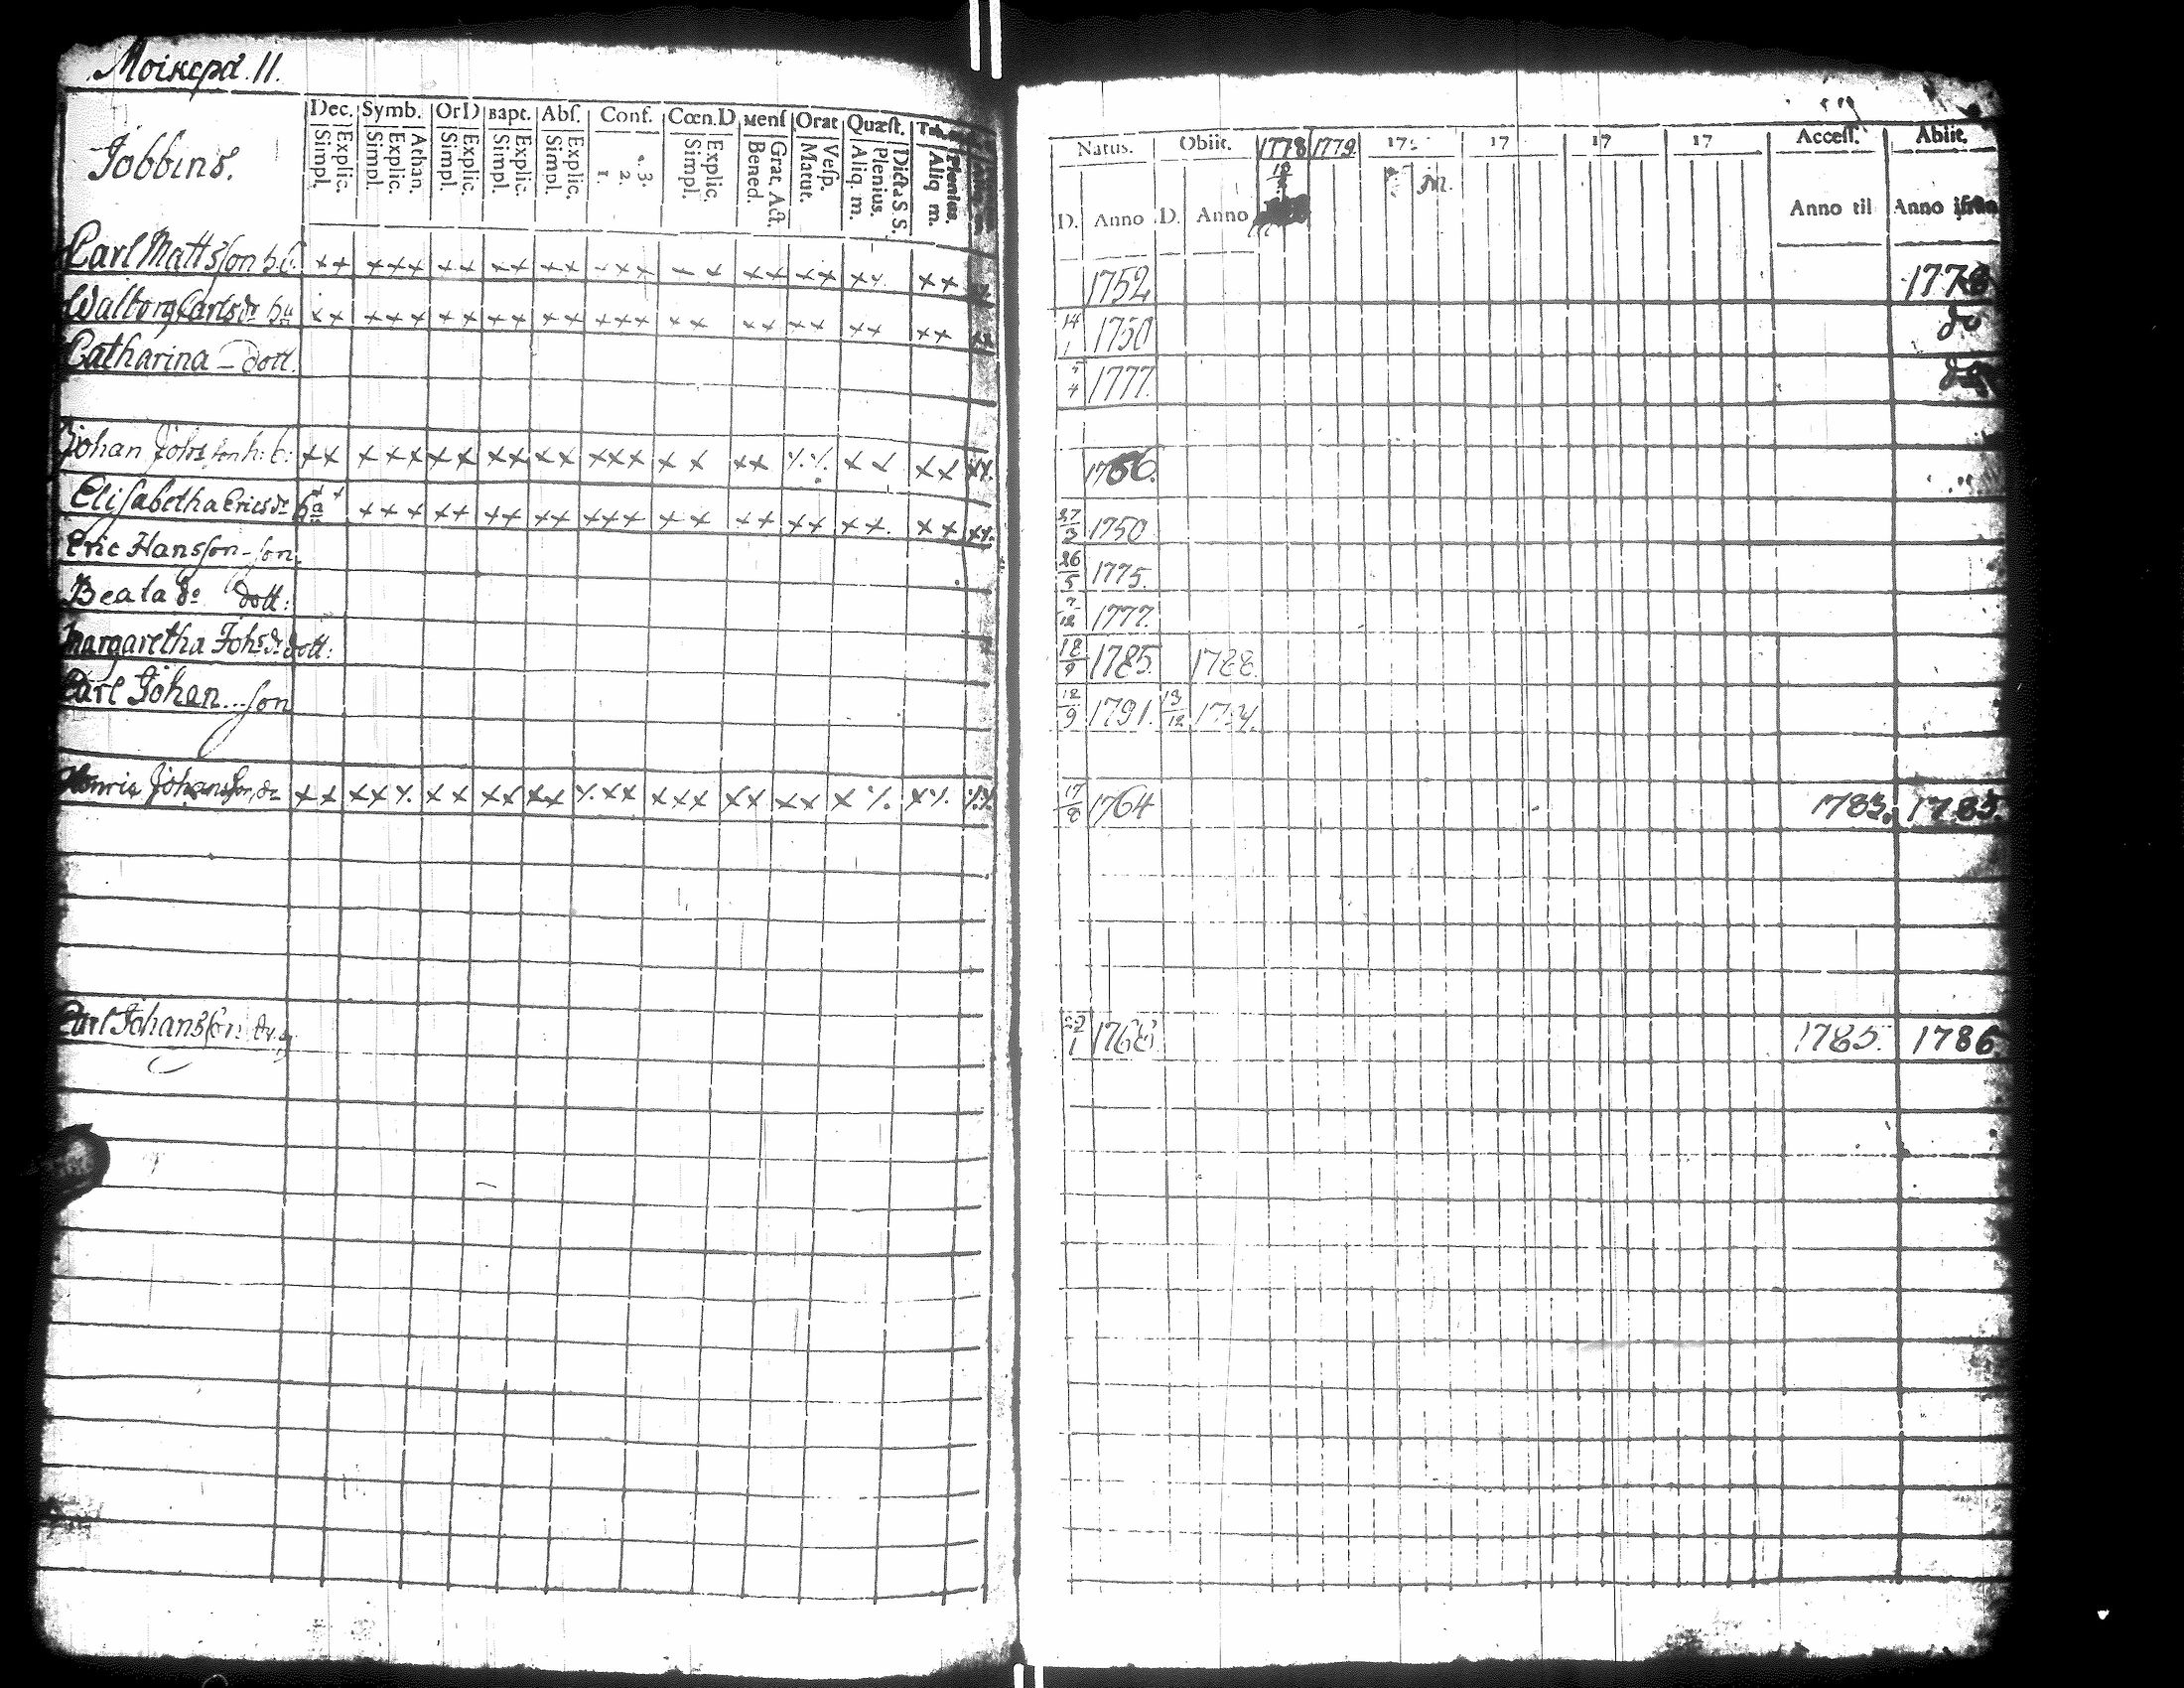 Moikepä. 11.
Jobbins.
Dec. Symb. OrD Bapt. Abſ. Conf. Cœn.D Menſ Orat Quæſt.
Explic. Simpl. Athan. Explic. Simpl. Explic. Simpl. Explic. Simpl. Explic. Simpl. 3. 2. 1. Explic. Simpl. Grat. Act. Bened. Veſp. Matut. Dicta S.S. Plenius. Aliq. m. Plenius. Aliq m.
Carl Mattsſon b:
Walborg Carlsdr
Catharina – dott.
Johan Johsſon h: b:
Eliſabetha Ericsdr
Eric Hansſon – ſon
Beata do dott:
Margaretha Johsdr dott:
Carl Johan... ſon
Johansſon
Carl Johansſon
Natus. Obiit. 1778 1779. 17 17 17 17 Acceſſ. Abiit.
D. Anno D. Anno Anno til Anno
1752 1778
14/1 1750 do
4 1777. do
1756.
27/3 1750
26/5 1775.
1777.
18/9 1785. 1788.
12/9 1791. 13/12
17/8 1764 1783. 1785.
1 1768 1785. 1786.